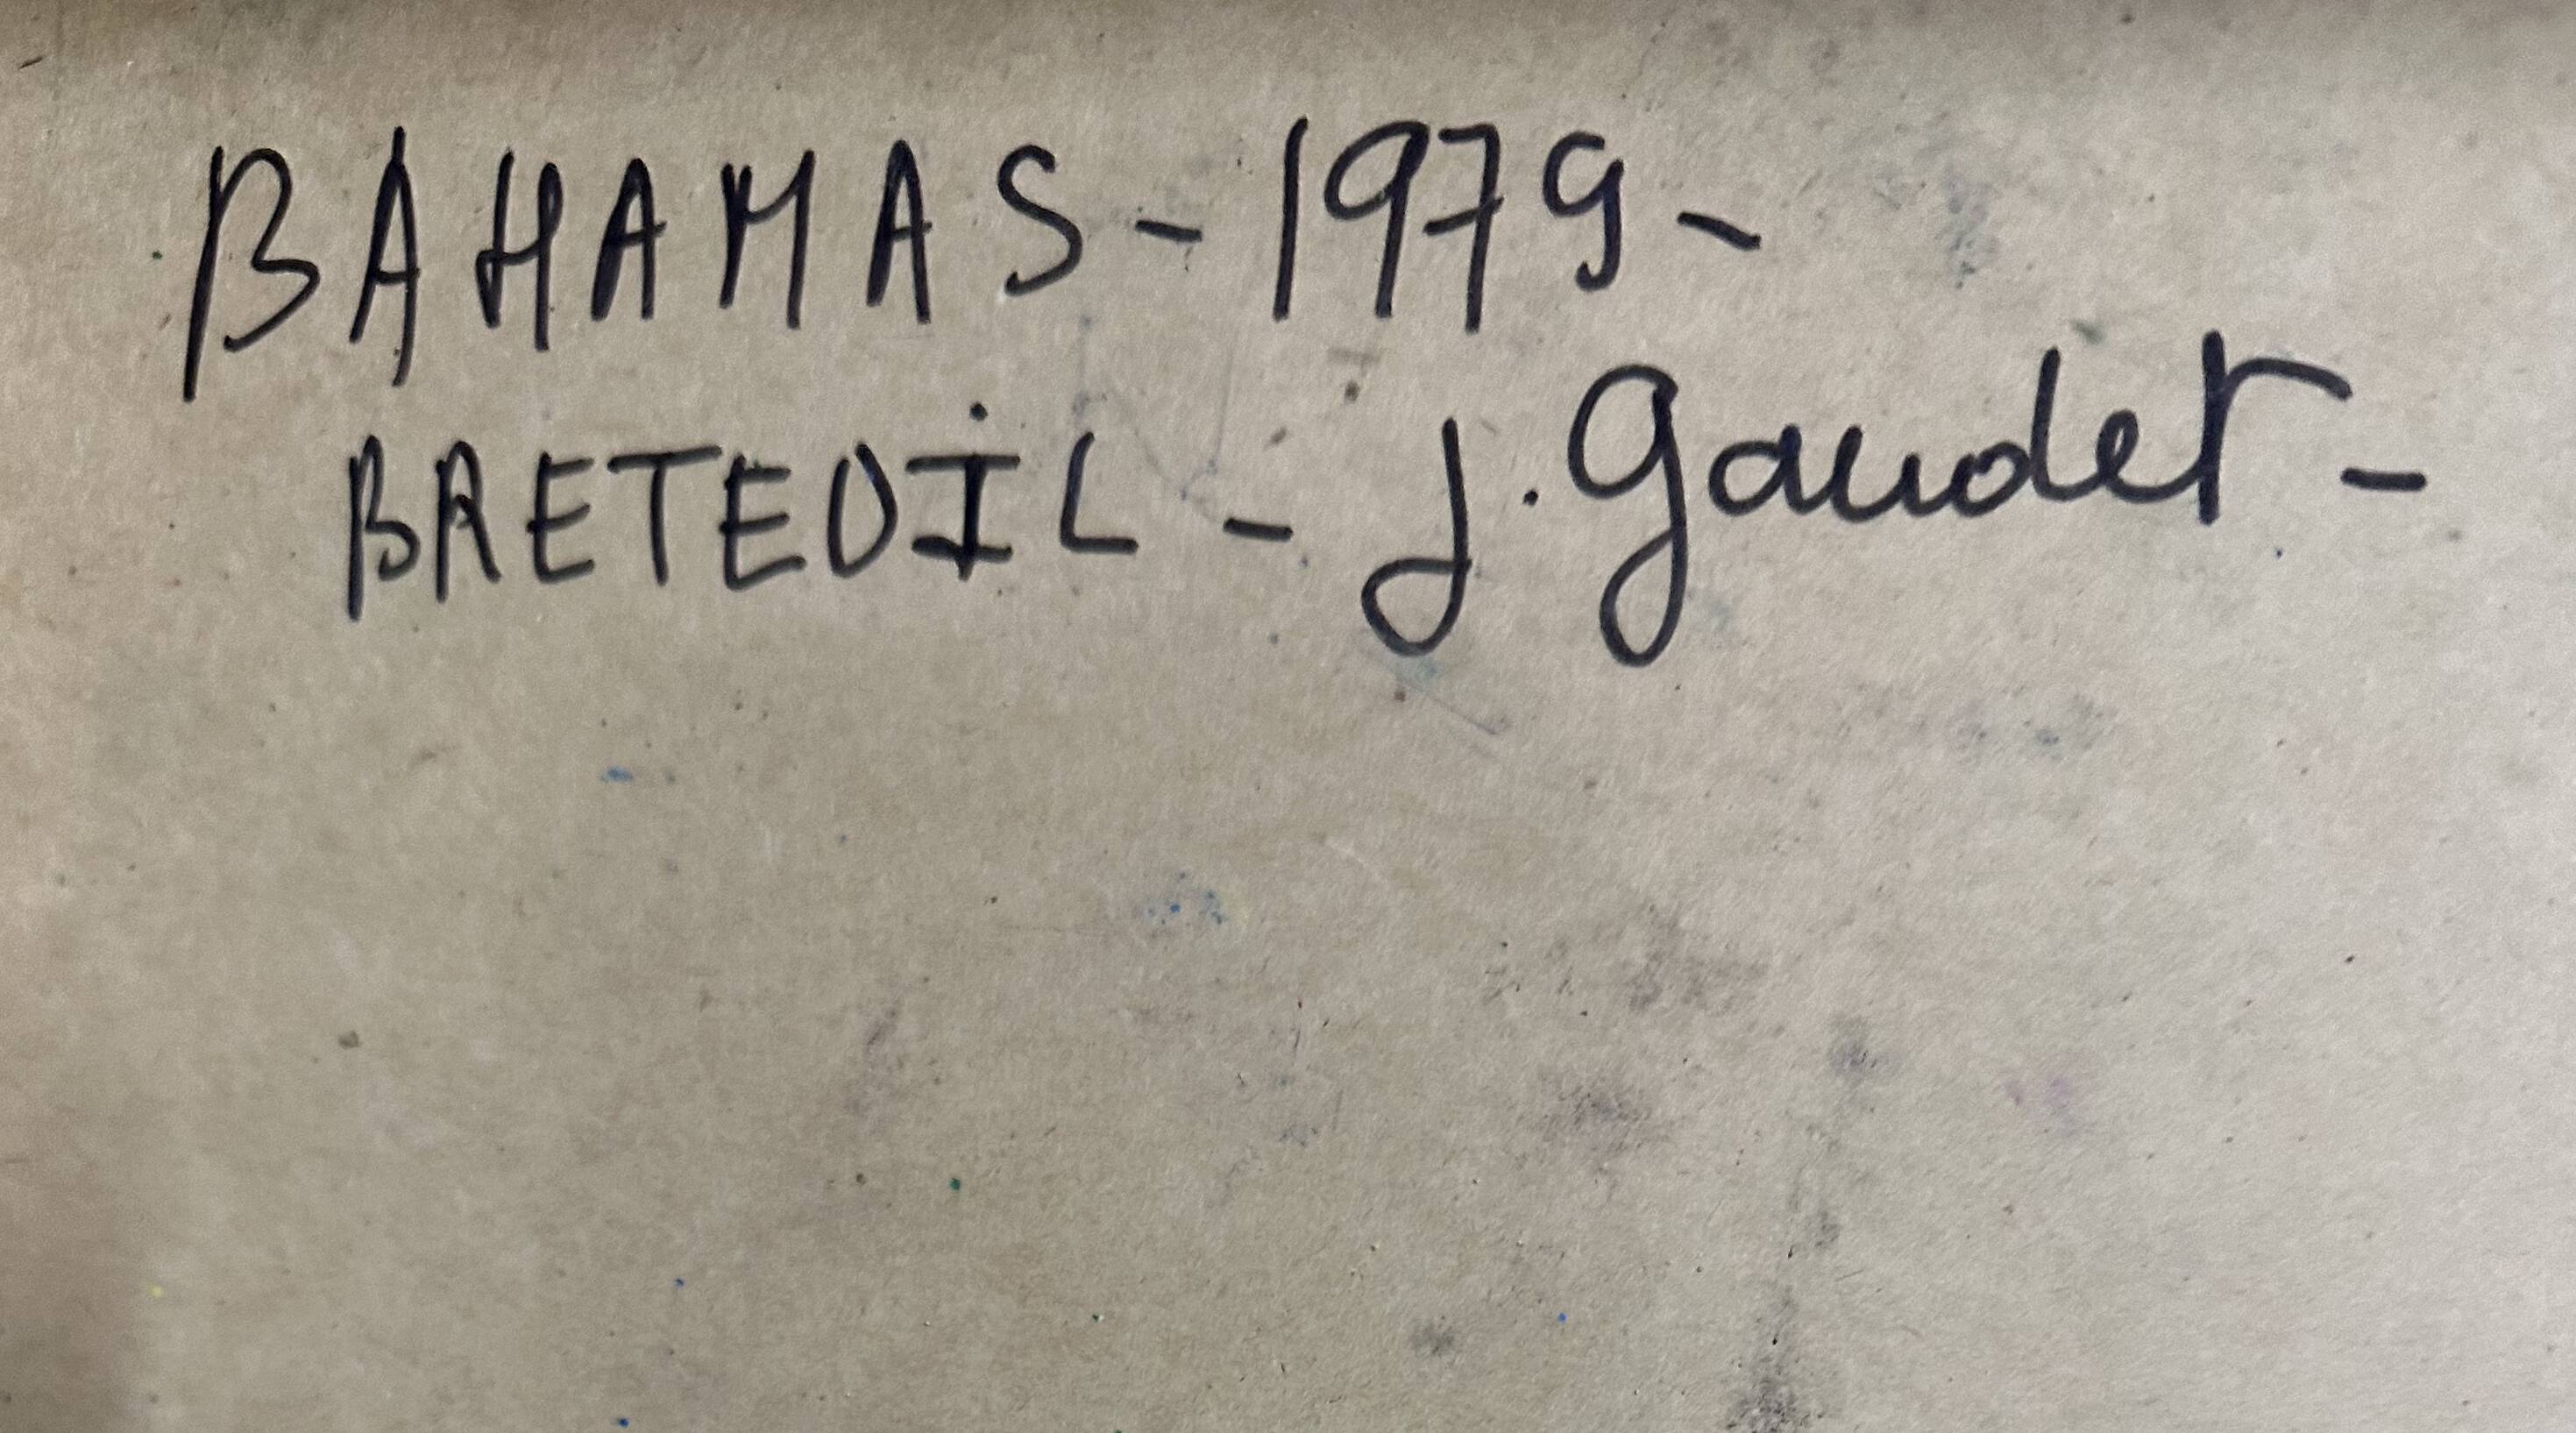 BAHAMAS - 1979 -
BRETEUIL - J. Gaudet -